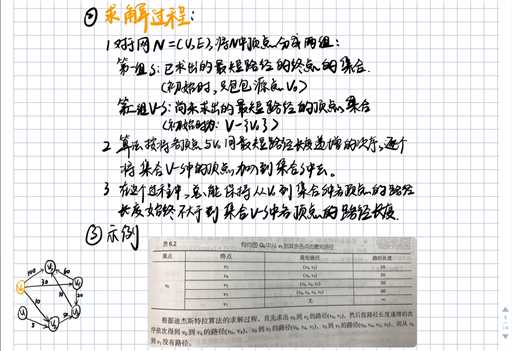 ② 求解过程:
1 对于网N=(V,E),将N中顶点分成两组:
第一组S:已求出的最短路径的终点的集合.
(初始时,只包含源点V₀)
第二组V-S:尚未求出的最短路径的顶点集合
(初始时为 V-{V₀})
2 算法按将各顶点与V₀间最短路径长度递增的次序,逐个
将集合V-S中的顶点加入到集合S中去.
3 在这个过程中,总能保持从V₀到集合S中各顶点的路径
长度始终不大于到集合V-S中各顶点的路径长度.
③ 示例
表6.2 有向图G₆中从v₀到其余各点的最短路径
源点 终点 最短路径 路径长度
v₀
v₂ (v₀, v₂) 10
v₄ (v₀, v₄) 30
v₃ (v₀, v₄, v₃) 50
v₅ (v₀, v₄, v₃, v₅) 60
v₁ 无 ∞
根据迪杰斯特拉算法的求解过程,首先求出v₀到v₂的路径(v₀, v₂),然后按路径长度递增的次
序依次得到v₀到v₄的路径(v₀, v₄)、v₀到v₃的路径(v₀, v₄, v₃)、v₀到v₅的路径(v₀, v₄, v₃, v₅),而从v₀
到v₁没有路径。
100
60
30
10
10
20
5
50